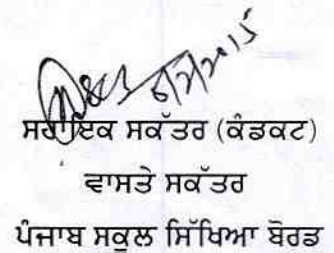 ਸਹਾਇਕ ਸਕੱਤਰ (ਕੰਡਕਟ)
ਵਾਸਤੇ ਸਕੱਤਰ
ਪੰਜਾਬ ਸਕੂਲ ਸਿੱਖਿਆ ਬੋਰਡ